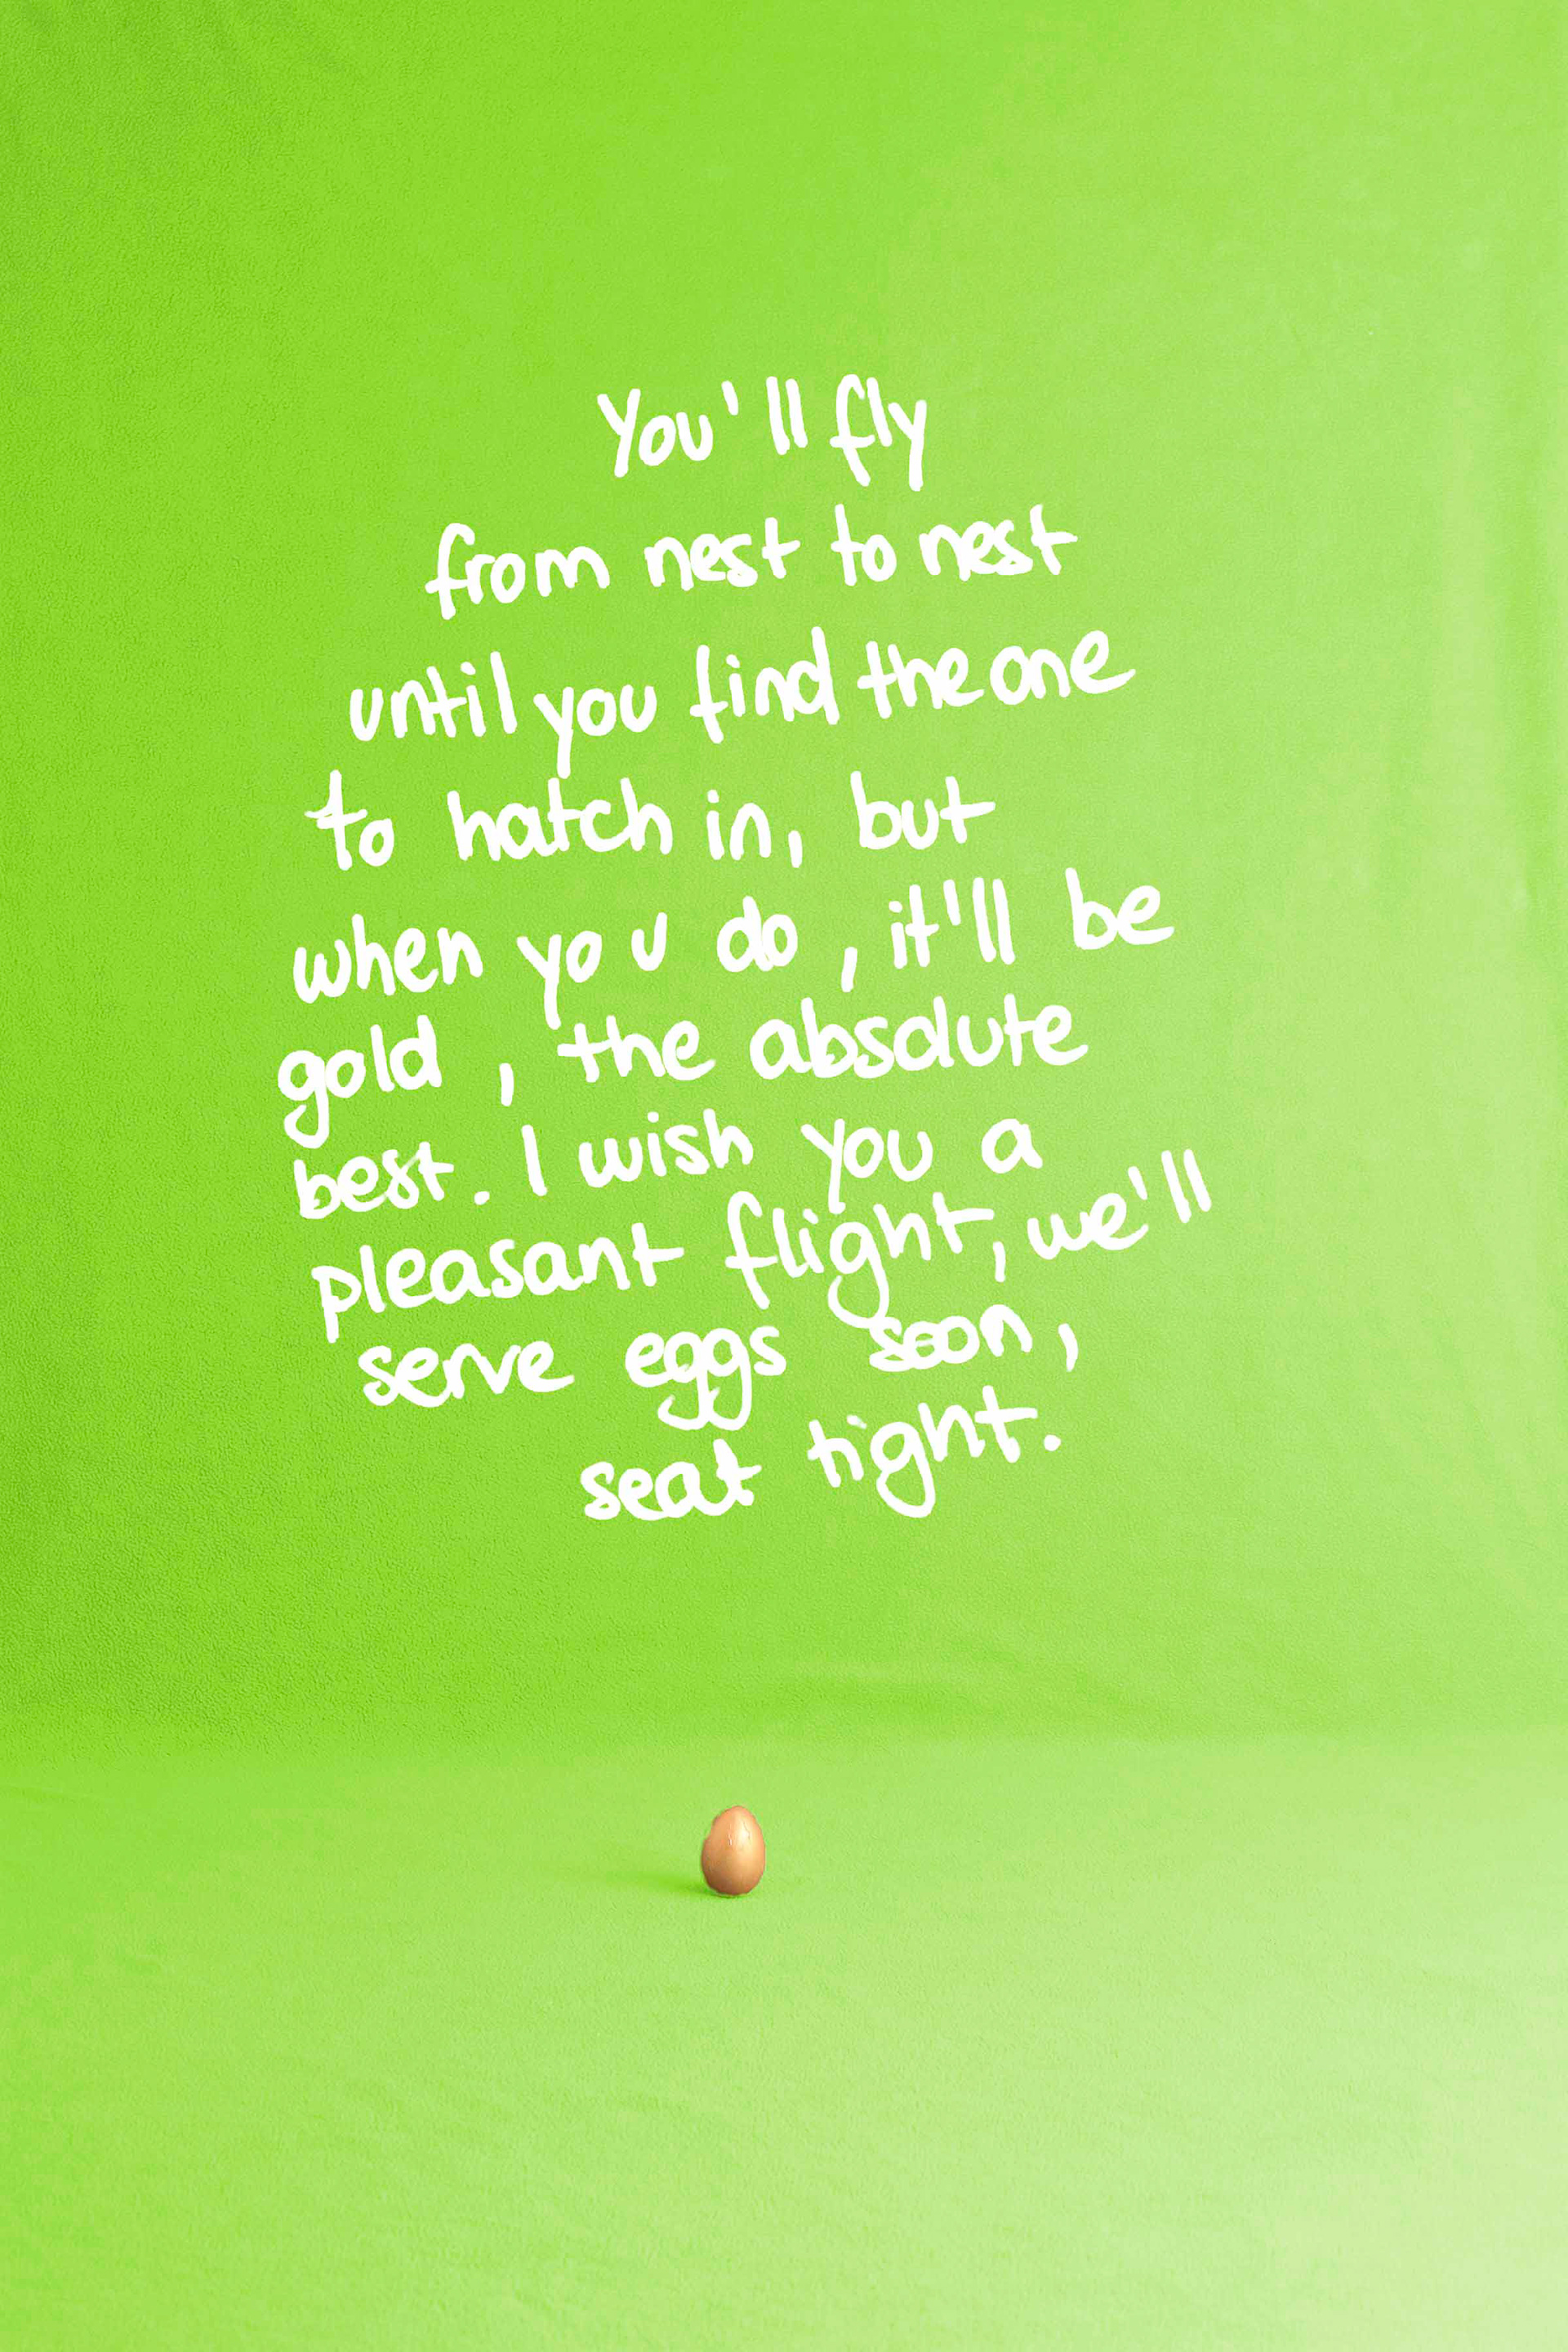 You'll fly
from nest to nest
until you find the one
to hatch in, but
when you do, it'll be
gold, the absolute
best. I wish you a
pleasant flight, we'll
serve eggs soon,
seat tight.